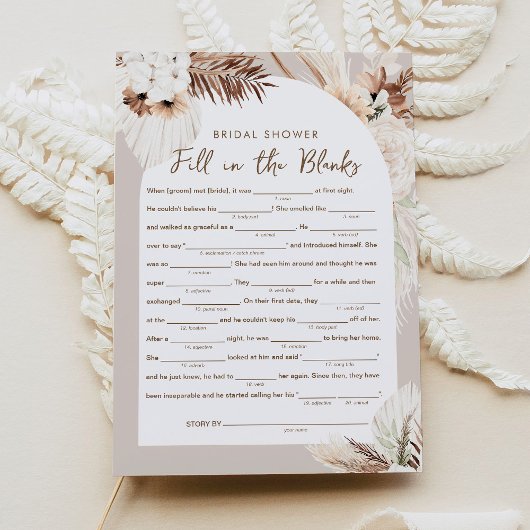 BRIDAL SHOWER
Fill in the Blanks
When [groom] met [bride], it was ____________ at first sight.
1. noun
He couldn't believe his ____________! She smelled like ____________
2. body part 3. noun
and walked as graceful as a ____________. He ____________
4. animal 5. verb (ed)
over to say "____________" and introduced himself. She
6. exclamation / catch phrase
was so ____________! She had seen him around and thought he was
7. emotion
super ____________. They ____________ for a while and then
8. adjective 9. verb (ed)
exchanged ____________. On their first date, they ____________
10. plural noun 11. verb (ed)
at the ____________ and he couldn't keep his ____________ off of her.
12. location 13. body part
After a ____________ night, he was ____________ to bring her home.
14. adjective 15. emotion
She ____________ looked at him and said "____________"
16. adverb 17. song title
and he just knew, he had to ____________ her again. Since then, they have
18. verb
been inseparable and he started calling her his "____________"
19. adjective 20. animal
STORY BY ____________
your name